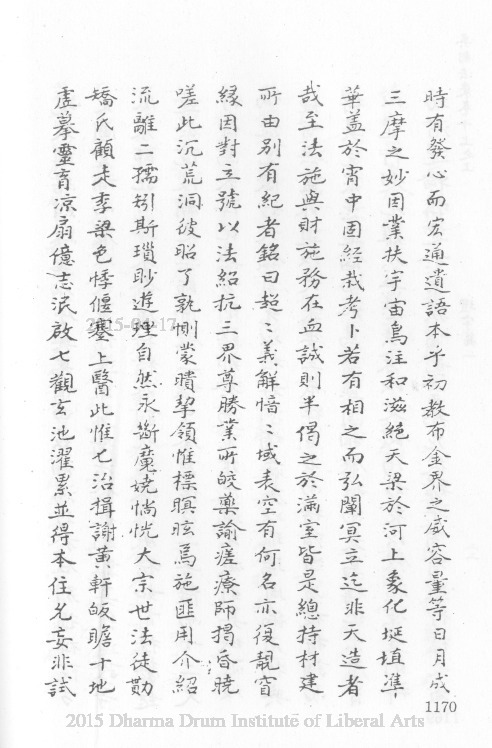 時有發心而宏通遺語本乎初教布金界之威容量等日月成
三摩之妙因業扶宇宙烏注和滋絕天梁於河上象化埏埴準
華蓋於宵中固經栽考卜若有相之而弘闡冥立迄非天造者
哉至法施與財施務在血誠則半偈之於滿室皆是總持材建
所由別有紀者銘曰超〻義解愔〻域表空有何名亦復靚窅
緣因對立號以法紹抗三界尊勝業所皎藥諭瘥療師揭昏曉
嗟此沉荒洞彼昭了孰惻蒙瞶挈領惟標瞑眩焉施匪用介紹
流離二孺矧斯瑣眇遊煙自然永斷魔嬈惝恍大宗世法徒勩
矯氏顧走季梁色悸偃蹇上醫此惟七治揖謝黃軒皈瞻十地
虛摹靈育凉扇億志泯啟七觀玄池濯累並得本住允妄非試
2015-04-17
1170
2015 Dharma Drum Institute of Liberal Arts